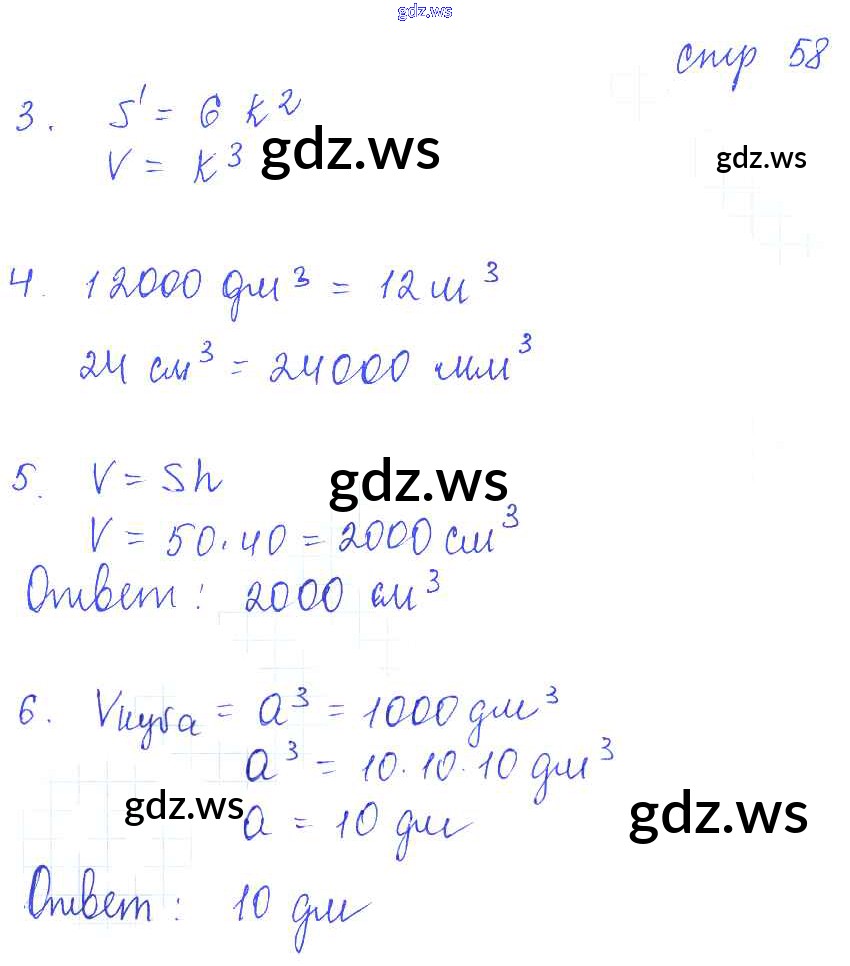 gdz.ws
стр 58
3. S = 6 k²
V = k³
gdz.ws
gdz.ws
4. 12000 дм³ = 12 м³
24 см³ = 24000 мм³
5. V = Sh
gdz.ws
V = 50 · 40 = 2000 см³
Ответ: 2000 см³
6. Vкуба = a³ = 1000 дм³
a³ = 10 · 10 · 10 дм³
gdz.ws
gdz.ws
a = 10 дм
Ответ: 10 дм